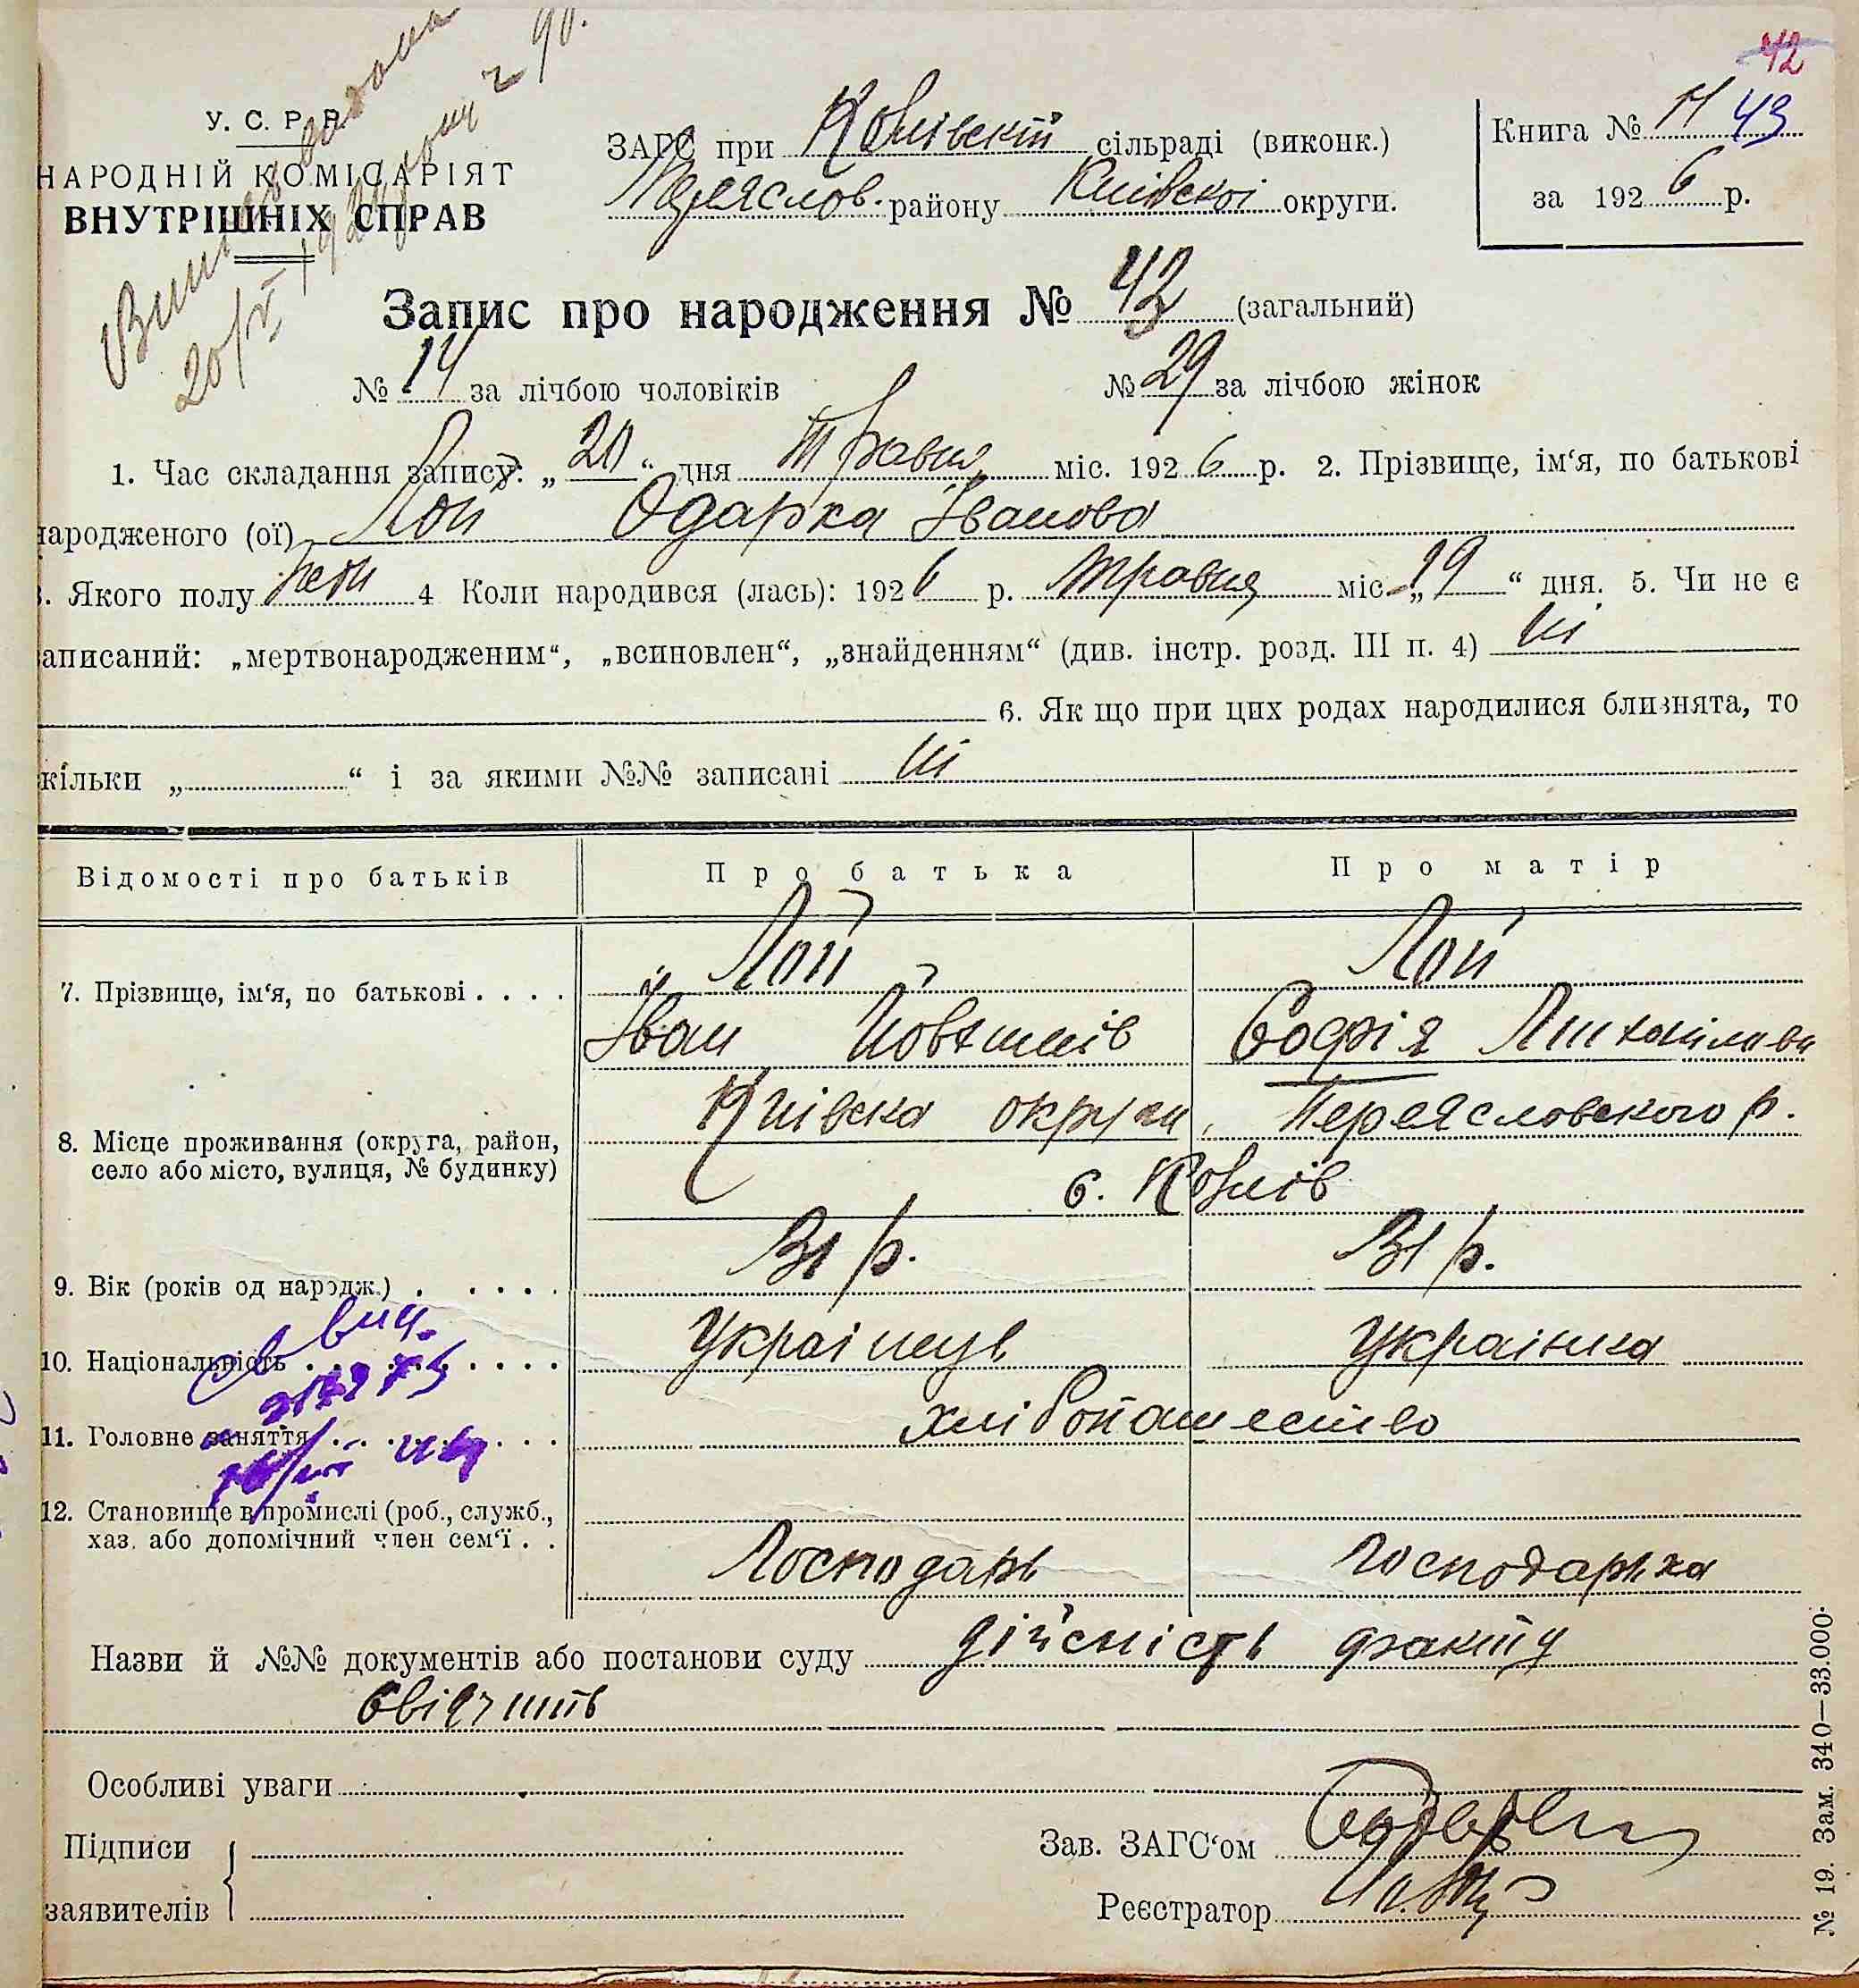 42
У. С. Р. Р.
НАРОДНІЙ КОМІСАРІЯТ
ВНУТРІШНІХ СПРАВ
ЗАГС при Ковлівскій сільраді (виконк.)
Переяслов. району Київскої округи.
Книга № 43
за 1926 р.
Запис про народження № 43 (загальний)
№ 14 за лічбою чоловіків № 29 за лічбою жінок
1. Час складання запису: „20“ дня Травня міс. 1926 р. 2. Прізвище, ім‘я, по батькові
народженого (ої) Лой Одарка Іванова
3. Якого полу жен 4 Коли народився (лась): 1926 р. травня міс. „19“ дня. 5. Чи не є
записаний: „мертвонародженим“, „всиновлен“, „знайденням“ (див. інстр. розд. III п. 4) ні
6. Як що при цих родах народилися близнята, то
кільки „ “ і за якими №№ записані ні
Відомості про батьків Про батька Про матір
Лой Лой
7. Прізвище, ім‘я, по батькові . . . .
Іван Софія
Київска округи, Переясловского р.
8. Місце проживання (округа, район,
село або місто, вулиця, № будинку)
с. Ковлів
31 р. 31 р.
9. Вік (років од народж.) . . . . .
10. Національність . . . . . . . . . . Українуць Українка
11. Головне заняття . . . . . . . . . хлібопашество
12. Становище в промислі (роб., служб.,
хаз. або допомічний член сем‘ї . .
Господарь Господарька
Назви й №№ документів або постанови суду дійсність факту
свідчить
Особливі уваги
Підписи
заявителів
Зав. ЗАГС‘ом
Реєстратор
№ 19. Зам. 340—33.000.